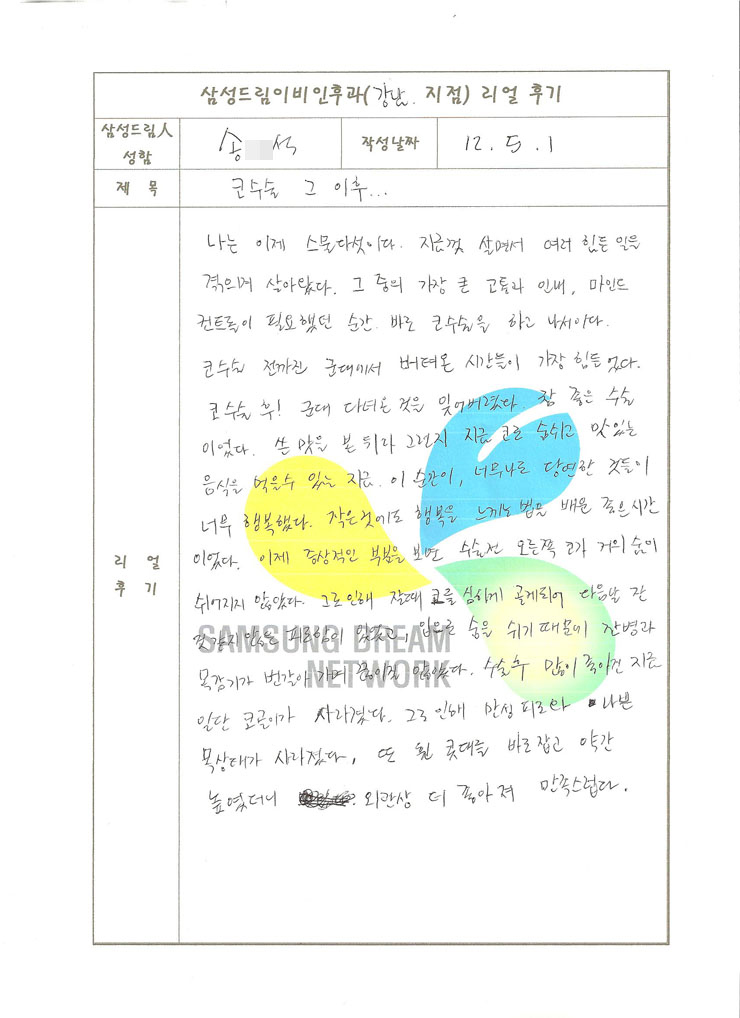 삼성드림이비인후과(강남. 지점) 리얼 후기
삼성드림人 성함
송 석
작성날짜
12. 5. 1
제 목
코수술 그 이후...
리 얼 후 기
나는 이제 스물다섯이다. 지금껏 살면서 여러 힘든 일을
겪으며 살아왔다. 그 중의 가장 큰 고통과 인내, 마인드
컨트롤이 필요했던 순간. 바로 코수술을 하고 나서이다.
코수술 전까진 군대에서 버텨온 시간들이 가장 힘들었다.
코수술 후! 군대 다녀온 것을 잊어버렸다. 참 좋은 수술
이었다. 쓴 맛을 본 뒤라 그런지 지금 코로 숨쉬고 맛있는
음식을 먹을수 있는 지금. 이 순간이, 너무나도 당연한 것들이
너무 행복했다. 작은것에도 행복을 느끼는 법을 배운 좋은시간
이었다. 이제 증상적인 부분을 보면 수술전 오른쪽 코가 거의 숨이
쉬어지지 않았다. 그로인해 잘때 코를 심하게 골게되어 다음날 잔
것같지않은 피로감이 있었고, 입으로 숨을 쉬기 때문에 잔병과
목감기가 번갈아 가며 끊이질 않았다. 수술후 많이 좋아진 지금
일단 코골이가 사라졌다. 그로 인해 만성 피로와 나쁜
목상태가 사라졌다, 또 휜 콧대를 바로잡고 약간
높였더니 외관상 더 좋아져 만족스럽다.
SAMSUNG DREAM
NETWORK